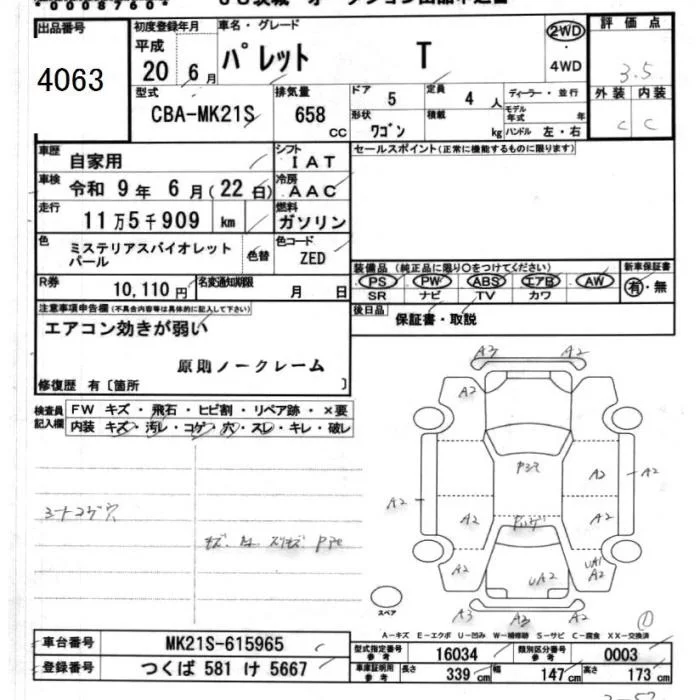 *00087607*
出品番号 4063
初度登録年月 平成 20年 6月
車名・グレード パレット T
2WD
4WD
評価点 3.5
型式 CBA-MK21S
排気量 658 CC
ドア 5
定員 4 人
ディーラー・並行
形状 ワゴン
積載 kg
モデル年式 年
ハンドル 左・右
外装 内装
C C
車歴 自家用
シフト IAT
車検 令和 9年 6月(22日)
冷房 AAC
走行 11万5千909 km
燃料 ガソリン
色 ミステリアスバイオレットパール
色替
色コード ZED
R券 10,110円
名変通知期限 月 日
セールスポイント(正常に機能するものに限ります)
装備品(純正品に限り○をつけてください)
PS PW ABS エアB AW
SR ナビ TV カワ
新車保証書 有・無
後日品 保証書・取説
注意事項申告欄(不具合内容等は具体的に記入して下さい)
エアコン効きが弱い
原則ノークレーム
修復歴 有〔箇所 〕
検査員記入欄
FW キズ・飛石・ヒビ割・リペア跡・×要
内装 キズ・汚レ・コゲ・穴・スレ・キレ・破レ
シートコゲ穴
A3 A2
A2
A2 A2
A2 A2 A2
A2 UA2 UA1 A2
A3 A3 A2
スペア
①
A-キズ E-エクボ U-凹み W-補修跡 S-サビ C-腐食 XX-交換済
車台番号 MK21S-615965
登録番号 つくば 581 け 5667
型式指定番号 参考 16034
類別区分番号 参考 0003
車庫証明用 参考 長さ 339 cm 幅 147 cm 高さ 173 cm